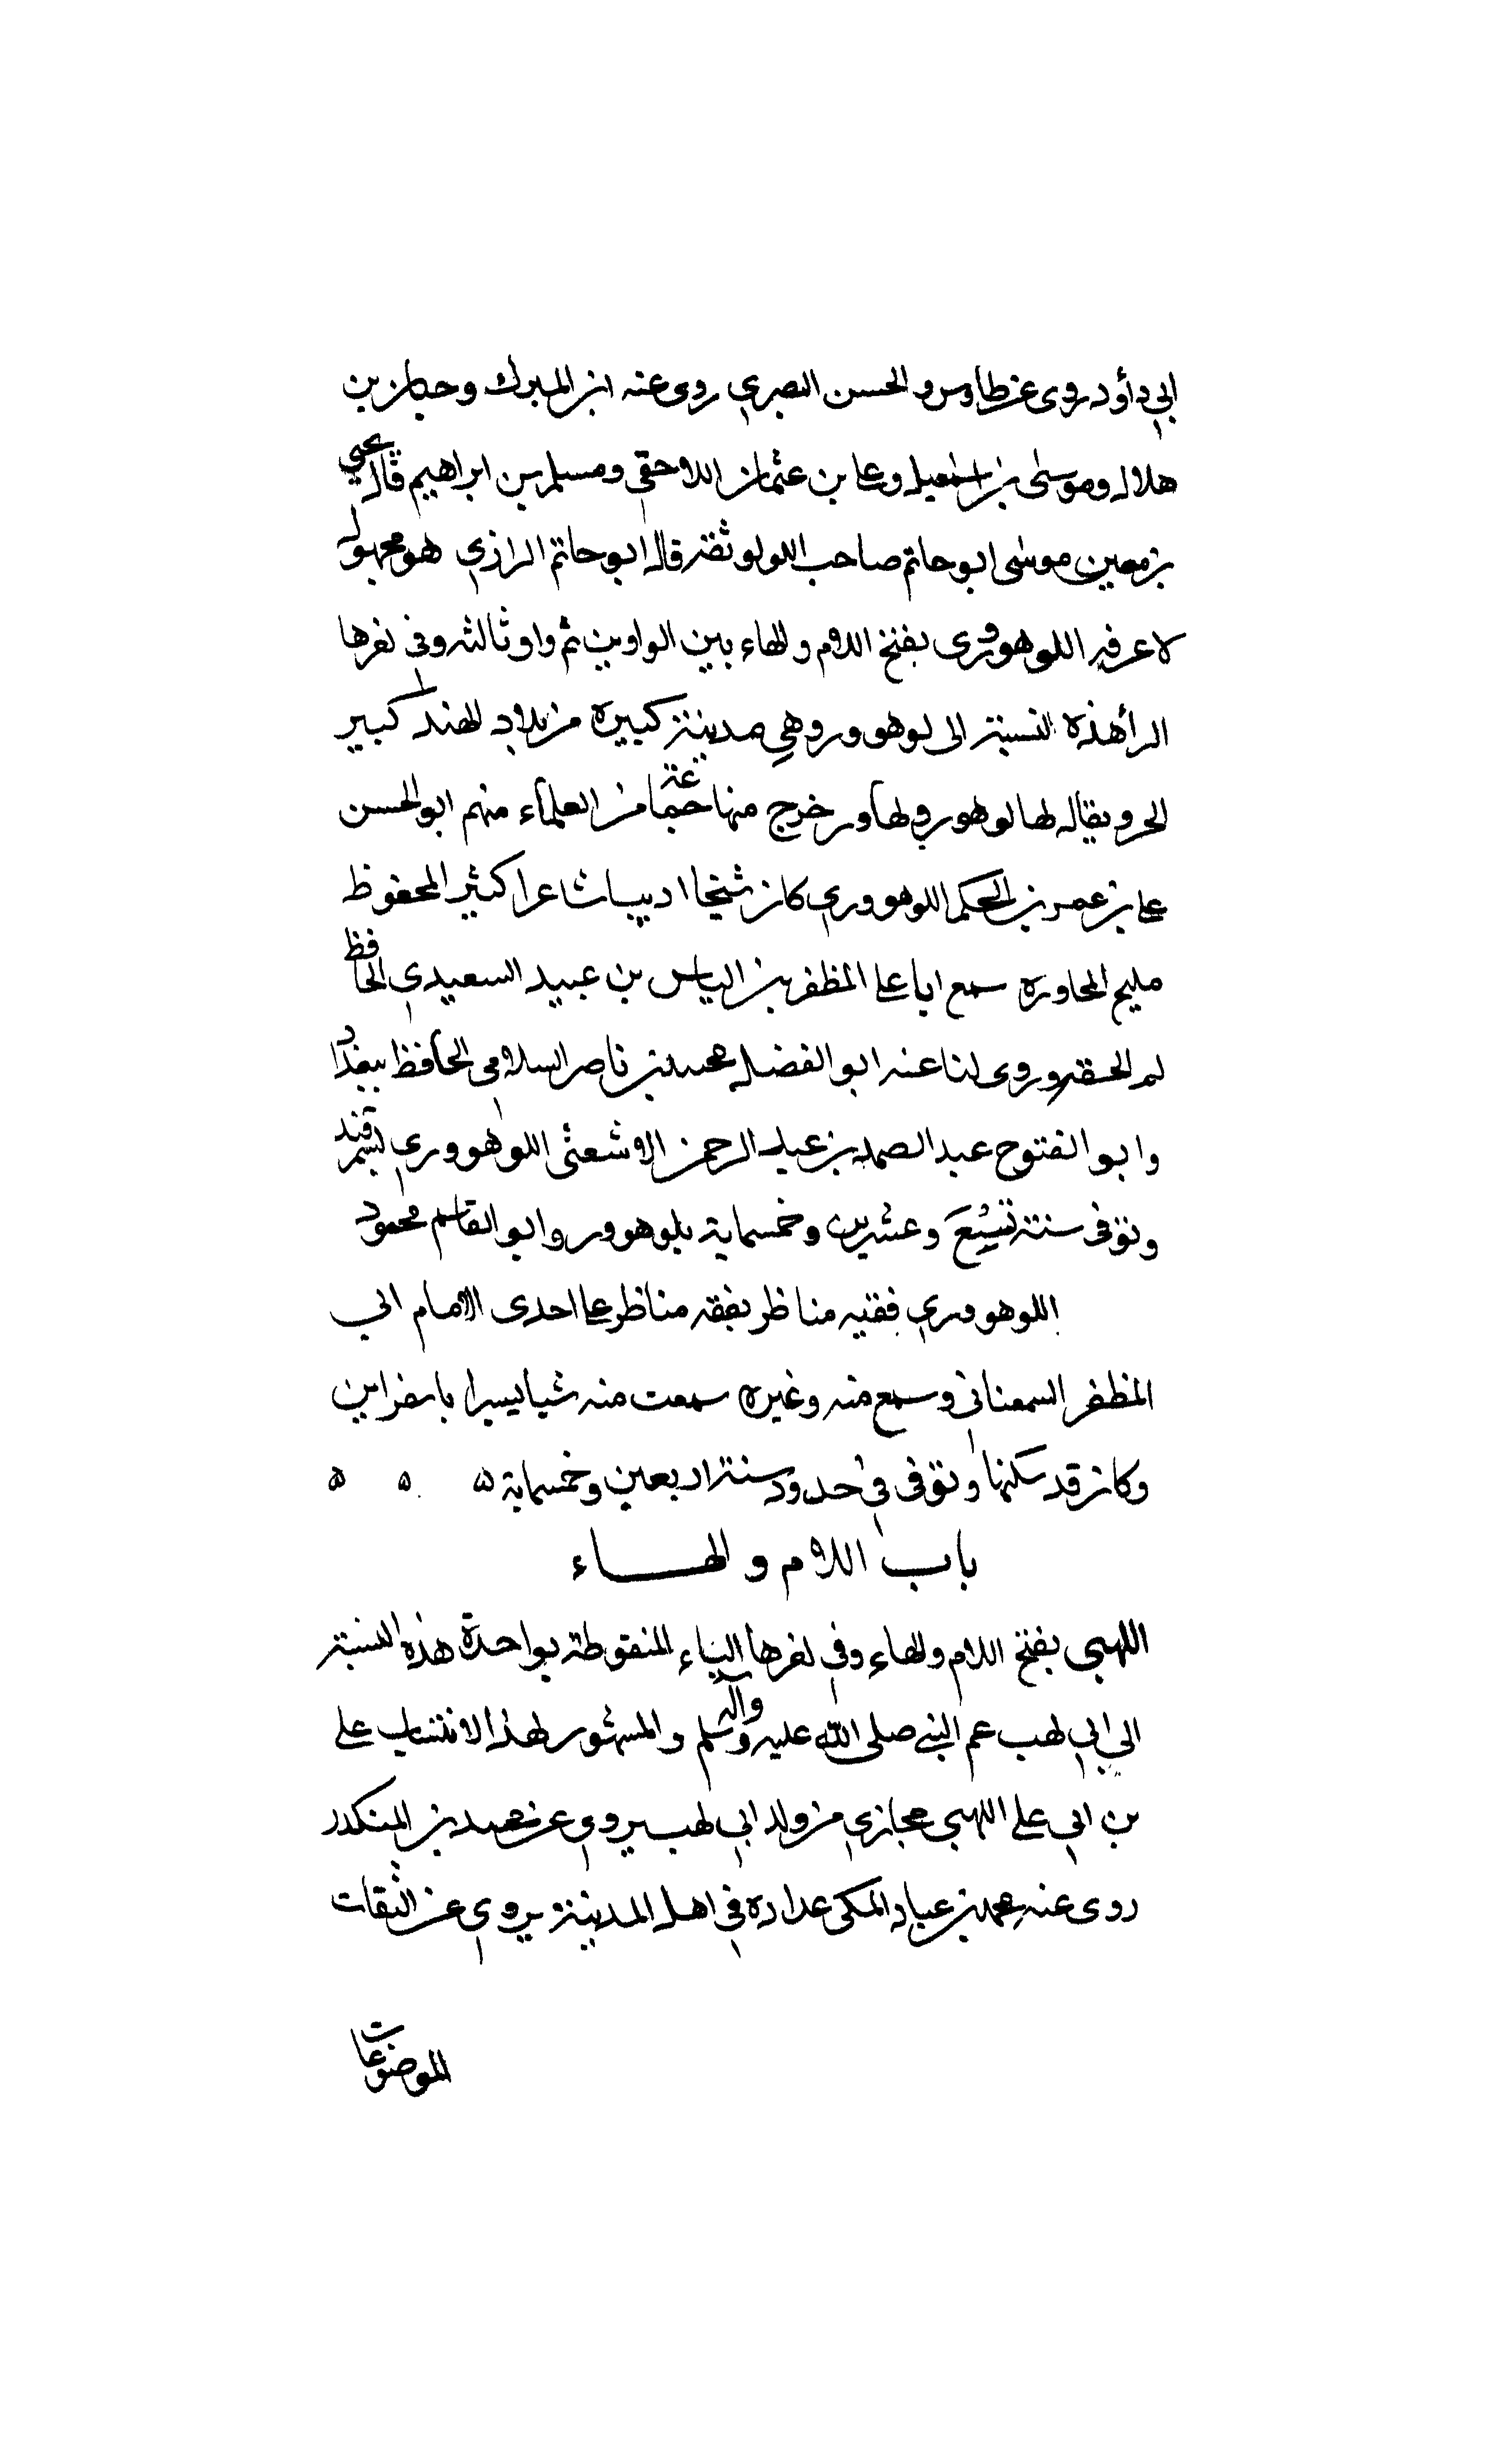 ابي دأود روى عن طاوس و الحسن البصري روى عنه ابن المبرك وحبان بن
هلال وموسى بن اسمعيل وعلي بن عثمان اللاحقي ومسلم بن ابراهيم قال يحيى
بن معين موسى ابو حاتم صاحب اللولو ثقة قال ابو حاتم الرازي هو مجهول
لا اعرفه اللوهووري بفتح اللام والهاء بين الواوين ثم واو ثالثه وفي اخرها
الرأ هذه النسبة الى لوهوور وهي مدينة كبيرة من بلاد الهند كبير
الخر ويقال لها لوهور ولهاور خرج منها جماعة من العلماء منهم ابو الحسن
علي بن عمر بن الحكم اللوهووري كان شيخا اديبا شاعرا كثير المحفوظ
مليح المحاوره سمع ابا علي المظفر بن الياس بن عبيد السعيدي الحافظ
لم الحقه وروى لنا عنه ابو الفضل محمد بن ناصر السلامي الحافظ ببغداد
وابو الفتوح عبد الصمد بن عبد الرحمن الاشعثى اللوهووري بسمرقند
وتوفى سنة تسع وعشرين وخمسماية بلوهوور وابو القاسم محمود
اللوهووري فقيه مناظر تفقه مناظر على احدى الامام ابي
المظفر السمعناني وسمع منه وغيره سمعت منه شيا يسيرا باسفراين
وكان قد سكنها وتوفى في حدود سنة اربعين وخمسماية ه ه ه
باب اللام والهاء
اللهبي بفتح اللام والهاء وفي اخرها الباء المنقوطة بواحدة هذه النسبة
الى ابي لهب عم النبي صلى الله عليه وآله وسلم والمشهور لهذا الانتساب على
بن ابي علي اللهبي حجازي من ولد ابي لهب يروي عن محمد بن المنكدر
روى عنه محمد بن عباد المكي عداده في اهل المدينة يروي عن الثقات
الموضوعات